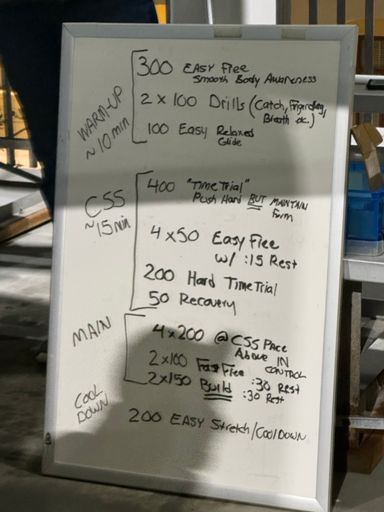 WARM-UP
~10 min
300 EASY Free
Smooth Body Awareness
2 x 100 Drills (Catch, Fingerdrag,
Breath etc.)
100 Easy Relaxed
Glide
CSS
~15 min
400 "Time Trial"
Push Hard BUT MAINTAIN
Form
4 x 50 Easy Free
w/ :15 Rest
200 Hard Time Trial
50 Recovery
MAIN
4 x 200 @ CSS Pace
Above IN
CONTROL
2 x 100 Fast Free :30 Rest
2 x 150 Build :30 Rest
COOL
DOWN
200 EASY Stretch/COOLDOWN